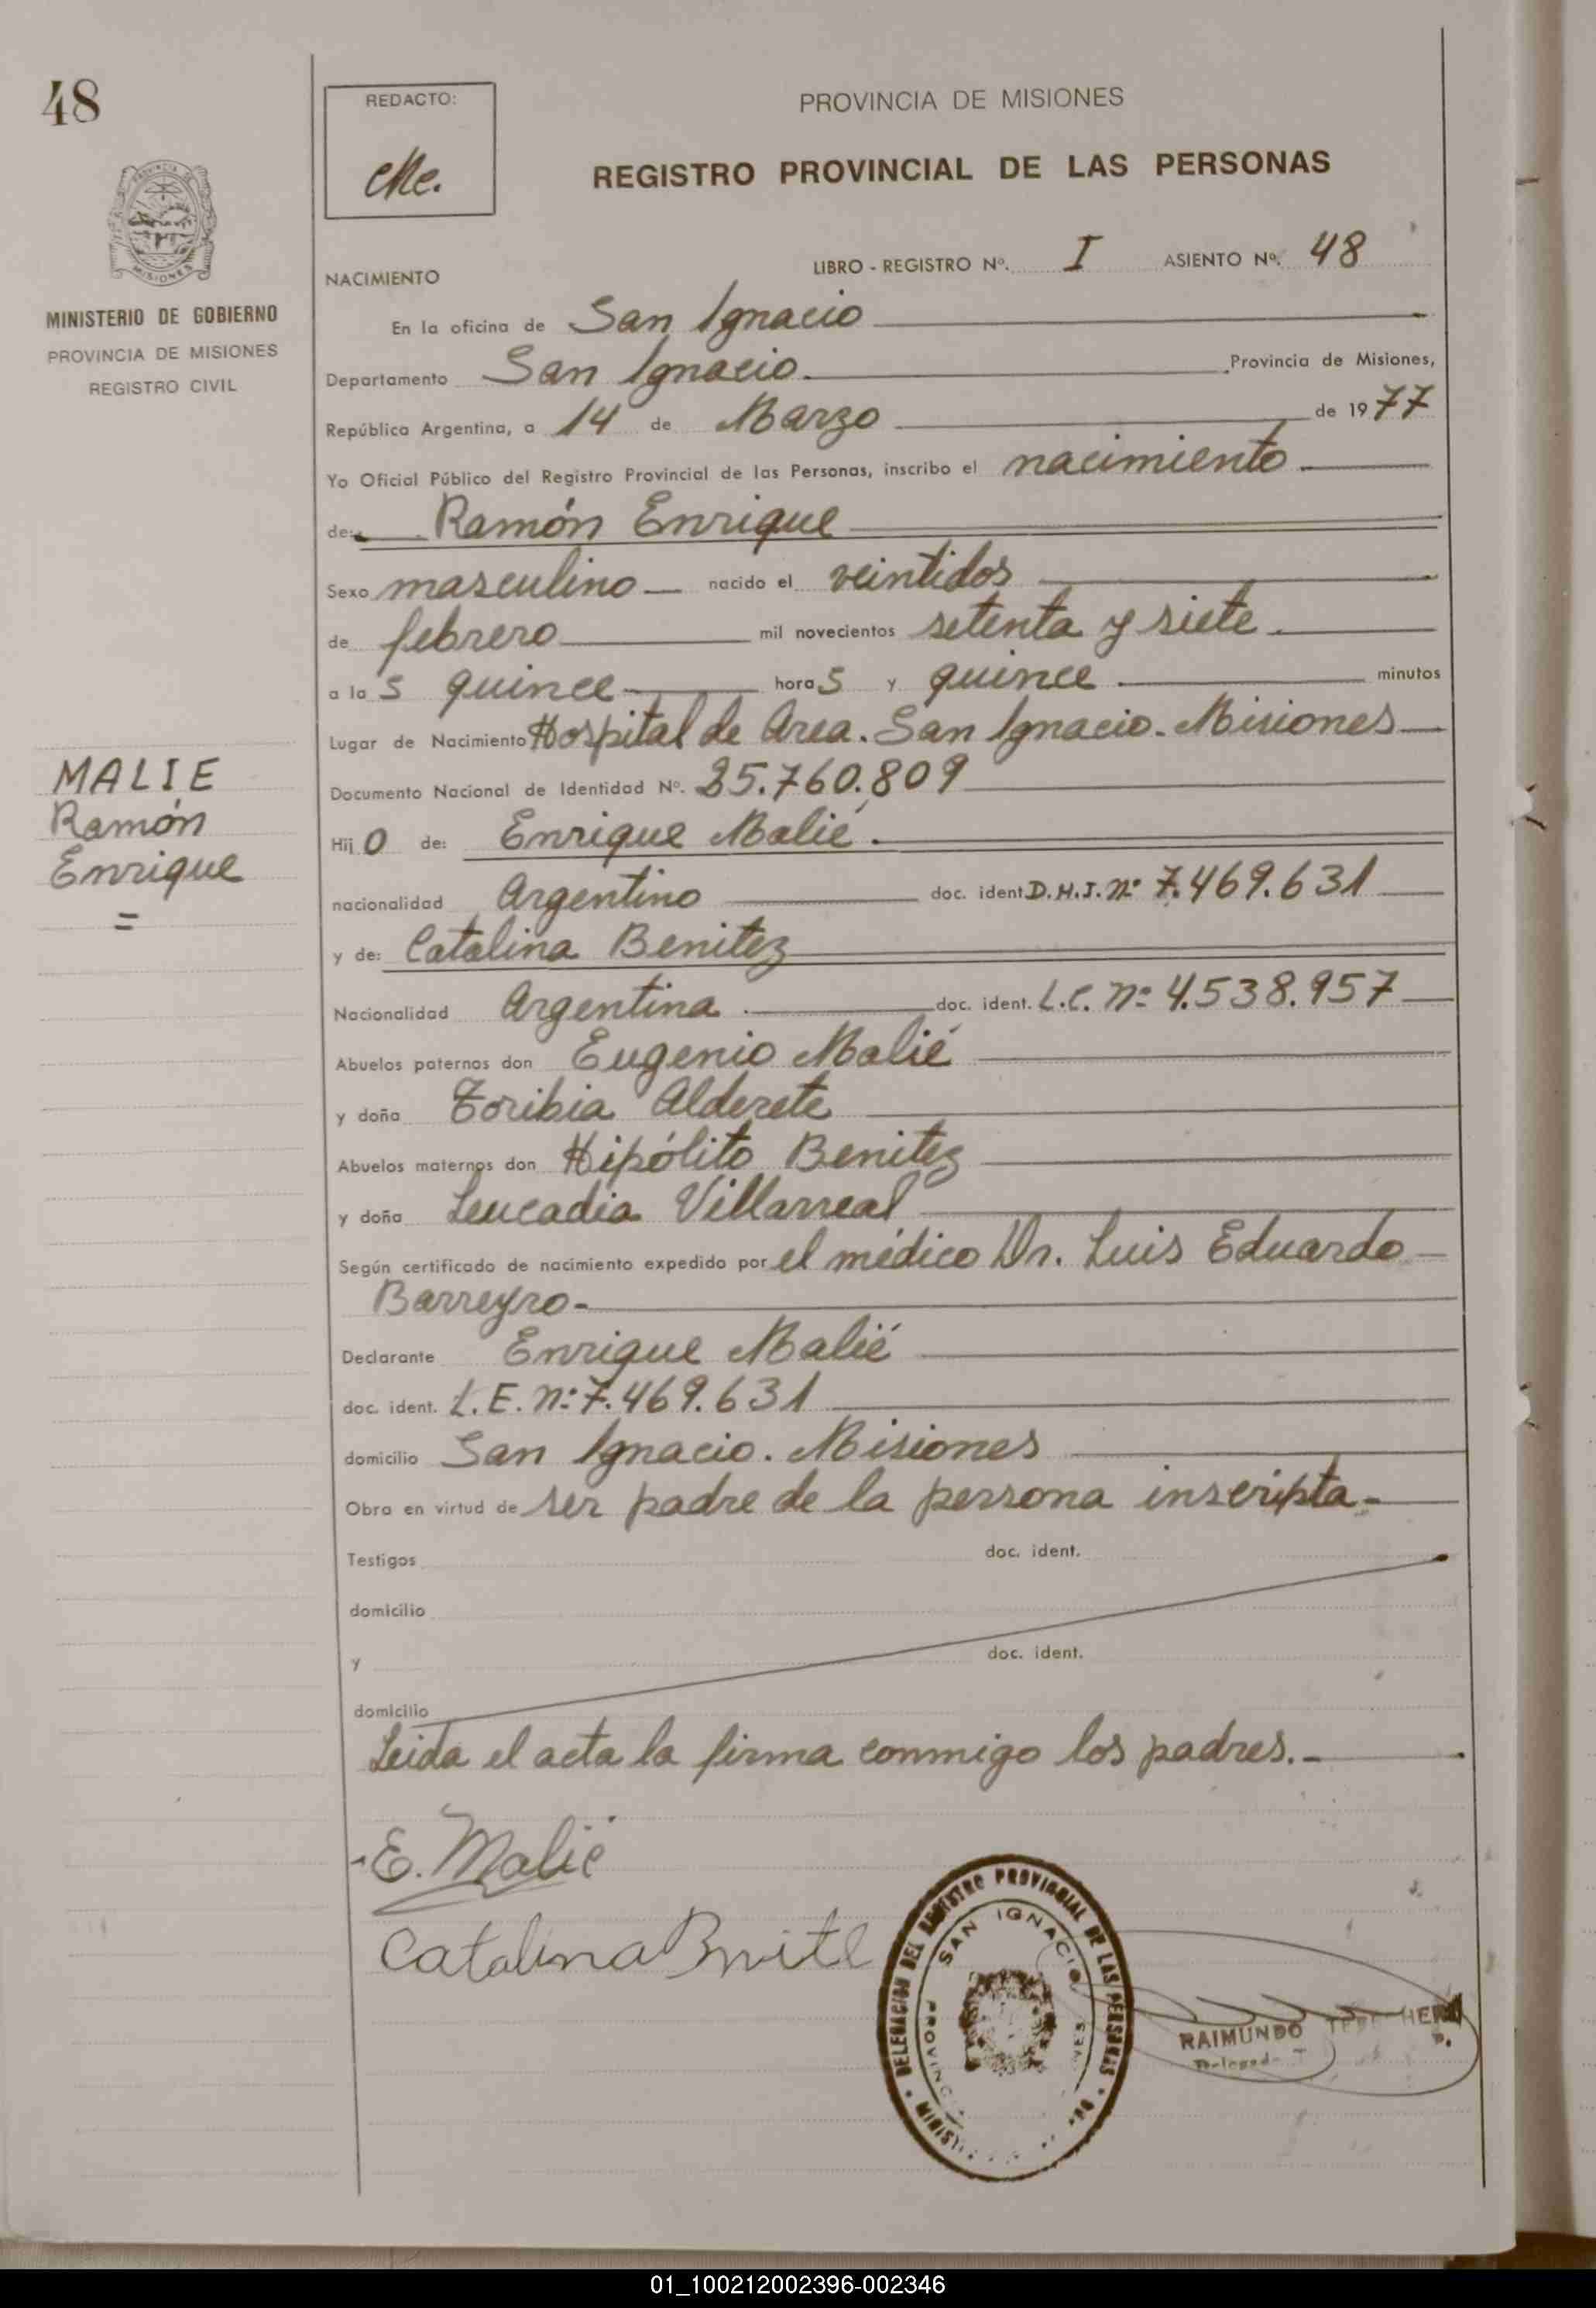 48
PROVINCIA DE MISIONES
MINISTERIO DE GOBIERNO
PROVINCIA DE MISIONES
REGISTRO CIVIL
MALIE
Ramón
Enrique
=
REDACTO:
PROVINCIA DE MISIONES
REGISTRO PROVINCIAL DE LAS PERSONAS
LIBRO - REGISTRO Nº. I ASIENTO Nº. 48
NACIMIENTO
En la oficina de San Ignacio
Departamento San Ignacio. Provincia de Misiones,
República Argentina, a 14 de Marzo de 1977
Yo Oficial Público del Registro Provincial de las Personas, inscribo el nacimiento.
de: Ramón Enrique
Sexo masculino nacido el veintidos
de febrero mil novecientos setenta y siete.
a las quince horas y quince minutos
Lugar de Nacimiento Hospital de Area. San Ignacio. Misiones
Documento Nacional de Identidad Nº. 25.760.809
Hijo de: Enrique Malié.
nacionalidad Argentino doc. ident D.N.I. nº 7.469.631
y de: Catalina Benitez
Nacionalidad Argentina. doc. ident. L.C. nº 4.538.957
Abuelos paternos don Eugenio Malié
y doña Toribia Alderete
Abuelos maternos don Hipólito Benitez
y doña Leucadia Villarreal
Según certificado de nacimiento expedido por el médico Dr. Luis Eduardo
Barreyro-
Declarante Enrique Malié
doc. ident. L.E. nº 7.469.631
domicilio San Ignacio. Misiones
Obra en virtud de ser padre de la persona inscripta-
Testigos doc. ident.
domicilio
y doc. ident.
domicilio
Leida el acta la firma conmigo los padres.-
E. Malié
Catalina
DELEGACION DEL REGISTRO PROVINCIAL DE LAS PERSONAS
SAN IGNACIO
RAIMUNDO
01_100212002396-002346